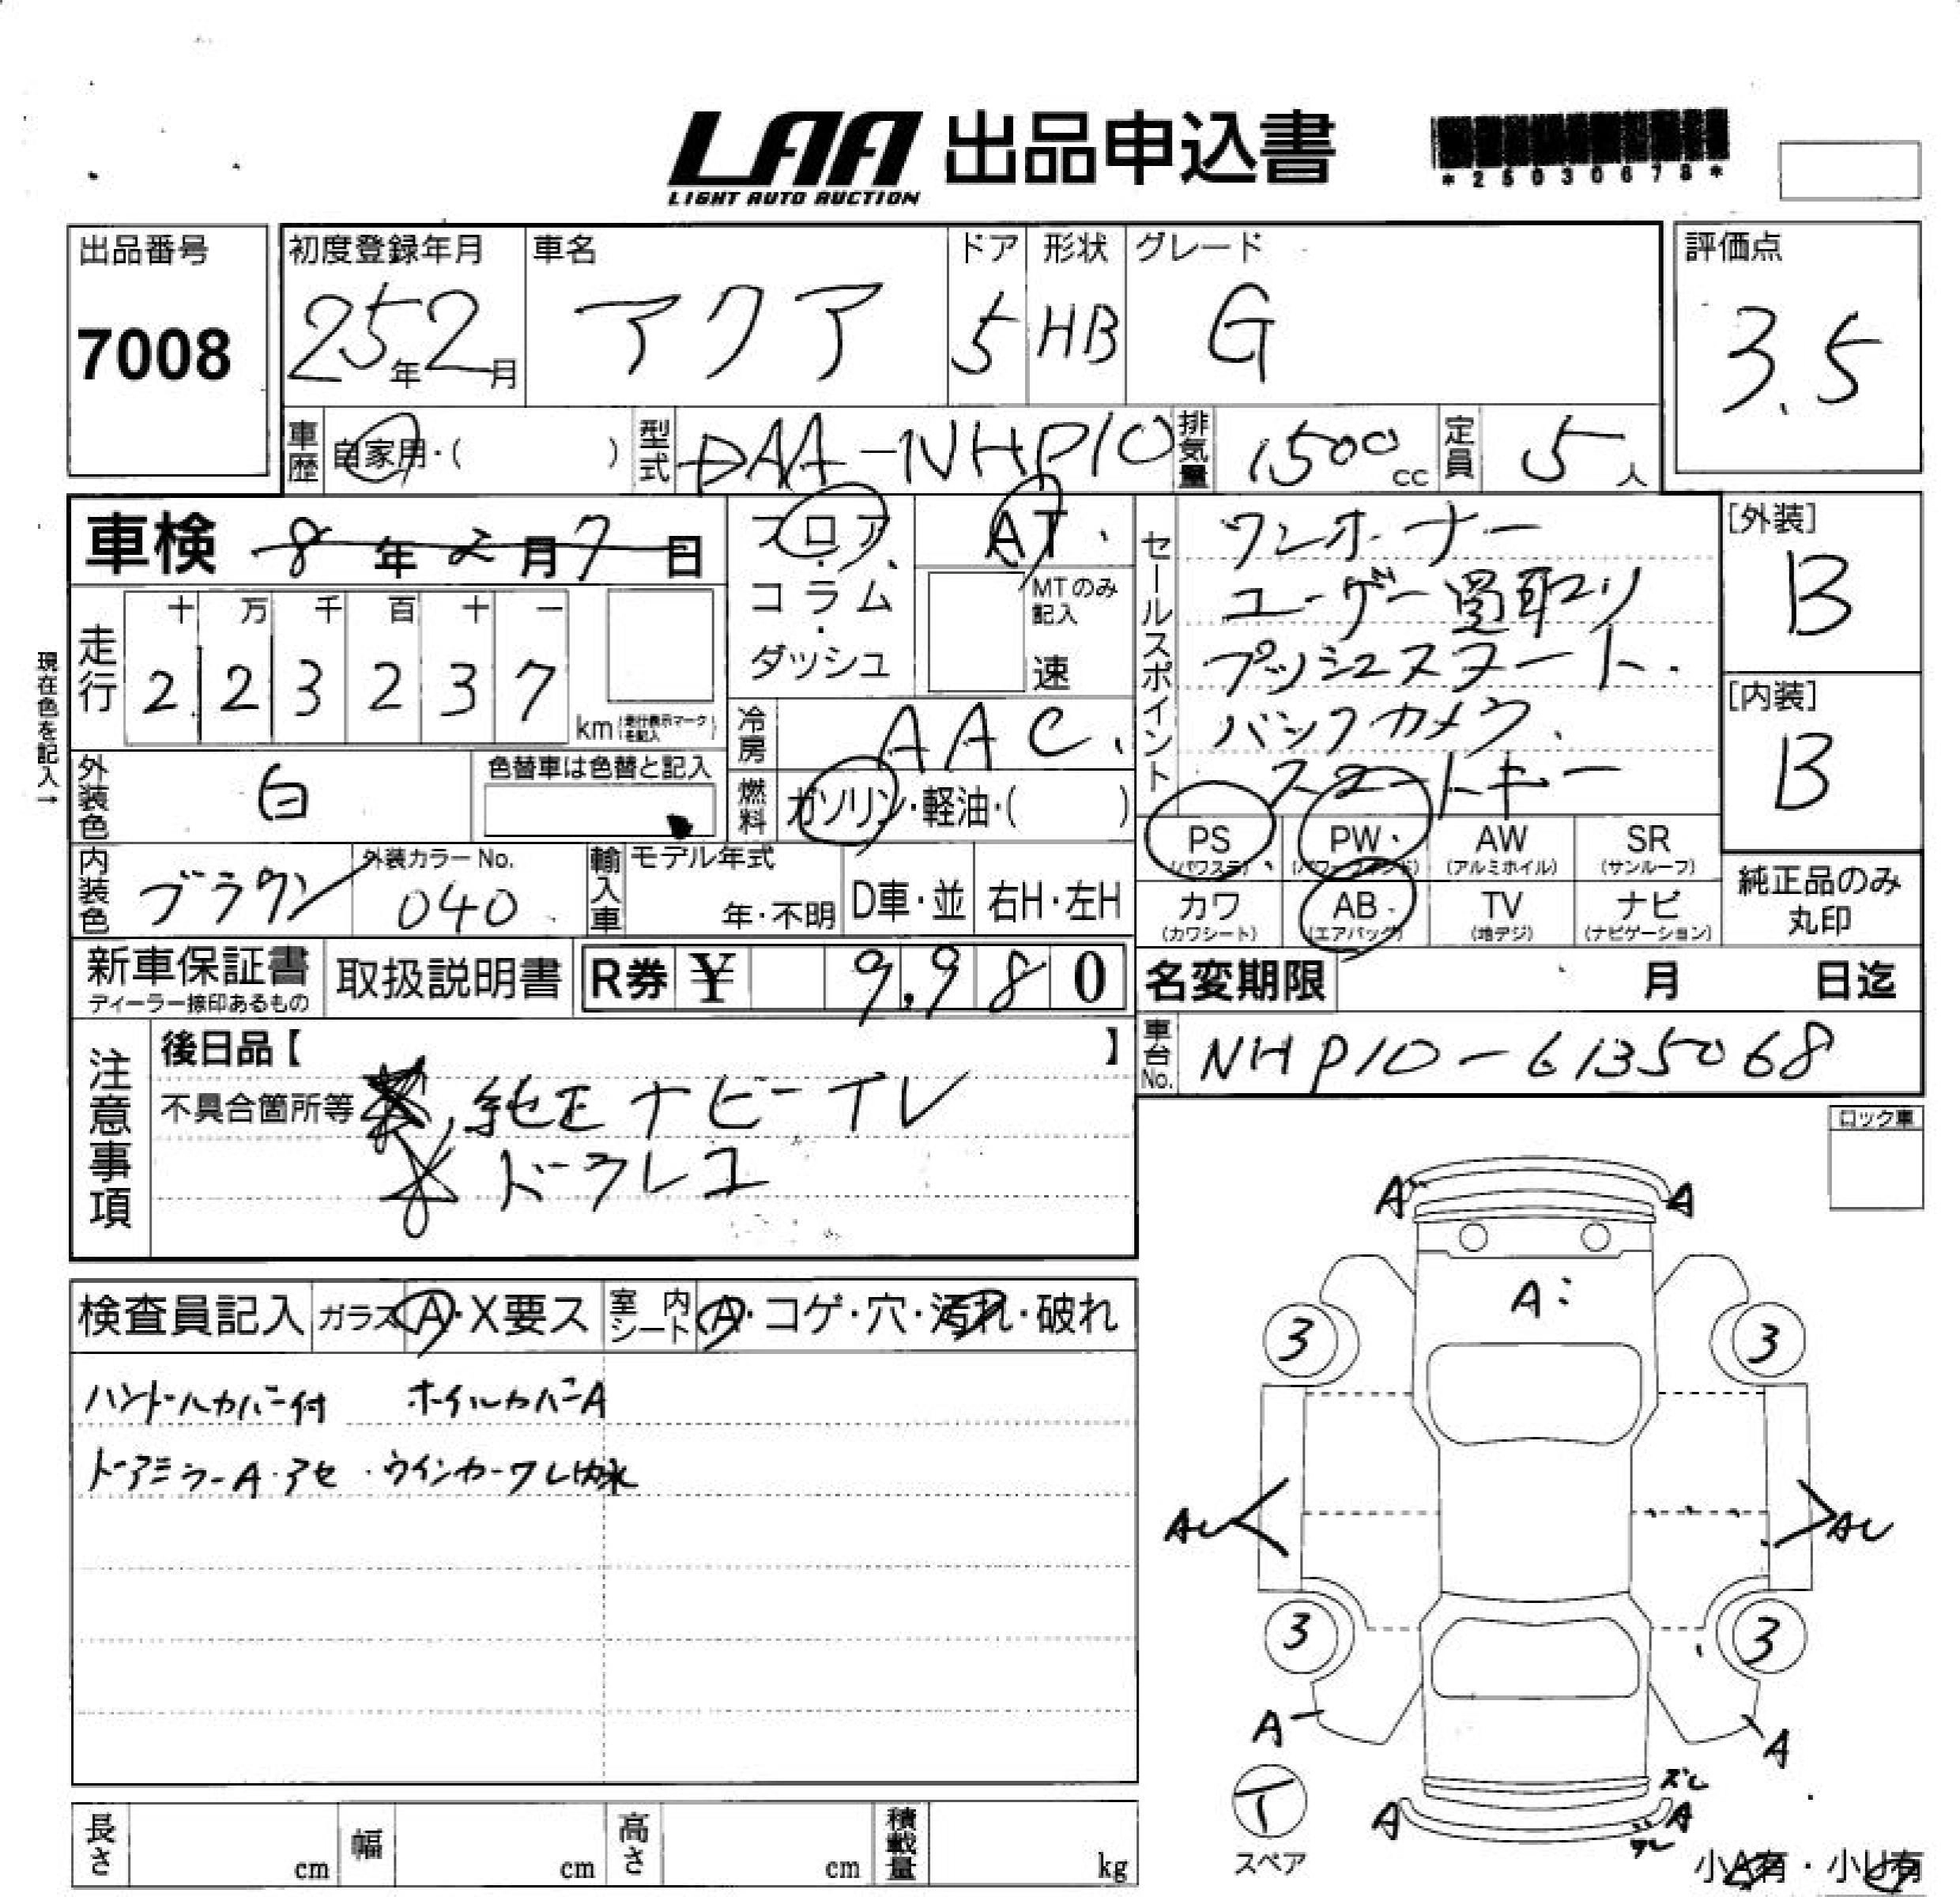 LAA 出品申込書
LIGHT AUTO AUCTION
*25030678*
出品番号
7008
初度登録年月
25年2月
車名
アクア
ドア
5
形状
HB
グレード
G
評価点
3.5
車歴
自家用・( )
型式
DAA-NHP10
排気量
1500cc
定員
5人
車検 8年2月7日
フロア
コラム
・
ダッシュ
AT
MTのみ記入
速
走行
十 万 千 百 十 一
2 2 3 2 3 7
km(走行表示マークを記入)
現在色を記入→
冷房
AAC
燃料
ガソリン・軽油・( )
外装色
白
色替車は色替と記入
内装色
ブラウン
外装カラーNo.
040
輸入車
モデル年式
年・不明
D車・並
右H・左H
セールスポイント
ワンオーナー
ユーザー買取り
プッシュスタート.
バックカメラ.
スマートキー
PS
(パワステ)
PW
(パワーウィンド)
AW
(アルミホイル)
SR
(サンルーフ)
カワ
(カワシート)
AB
(エアバッグ)
TV
(地デジ)
ナビ
(ナビゲーション)
[外装]
B
[内装]
B
純正品のみ
丸印
新車保証書
ディーラー捺印あるもの
取扱説明書
R券 ¥ 9,980
名変期限 月 日迄
車台No.
NHP10-6135068
注意事項
後日品【 】
不具合箇所等 純正ナビーTV
ドラレコ
ロック車
検査員記入
ガラス A・X要ス
室内シート A・コゲ・穴・汚れ・破れ
ハンドルカバー付 ホイルカバーA
ドアミラーA・アセ・ウインカーワレ
A A
A:
3 3
AU AU
3 3
A A
T
スペア
A ズレ A
小A有・小U有
長さ cm
幅 cm
高さ cm
積載量 kg